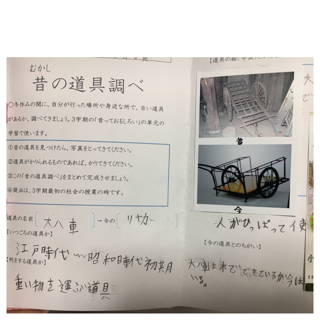 むかし
昔の道具調べ
○冬休みの間に、自分が行った場所や身近な所で、古い道具
があるか、調べてきましょう。3学期の「昔っておもしろい」の単元の
学習で使います。
①昔の道具を見つけたら、写真をとってきてください。
②道具がかりられるものであれば、かりてきてください。
③この「昔の道具調べ」をまとめて完成させましょう。
④提出は、3学期最初の社会の授業の時です。
道具の名前
大八車
→今の
リヤカー
【いつごろの道具か】
江戸時代…昭和時代初期
【何をする道具か】
重い物を運ぶ道具
昔
今
人がひっぱって使
【今の道具とのちがい】
大八車は木でできているが今は
いる。